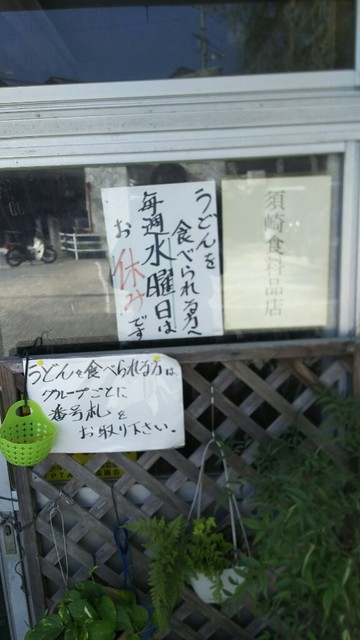 須崎食料品店
うどんを
食べられる方へ
毎週水曜日は
お休みです
うどんを食べられる方は
グループごとに
番号札を
お取り下さい。